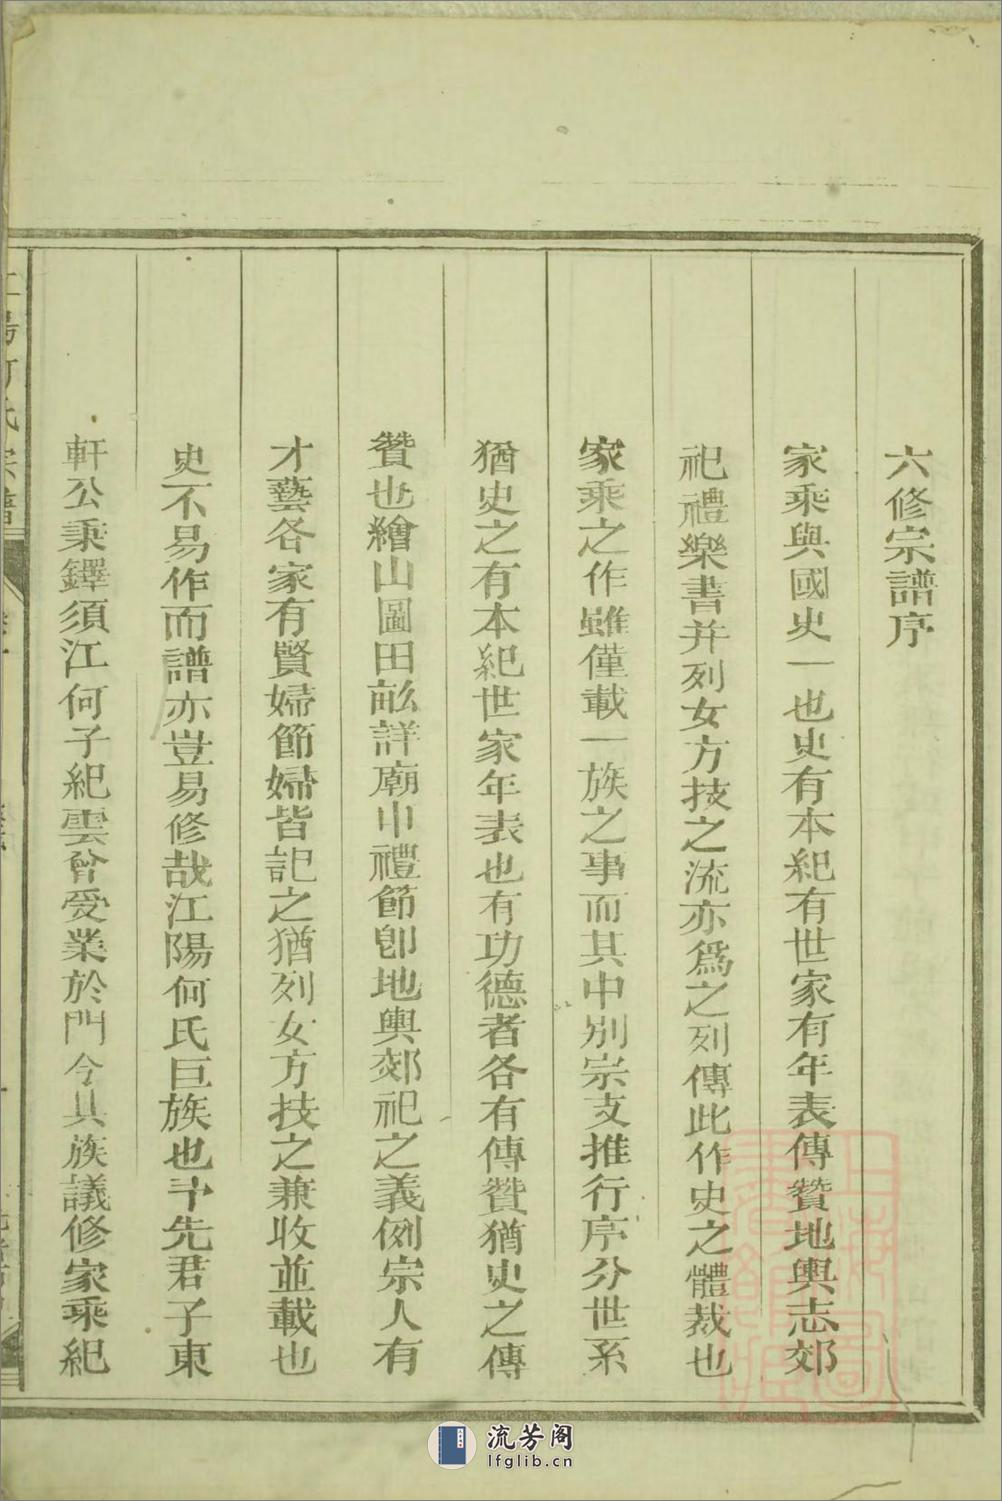 六修宗譜序
家乘與國史一也史有本紀有世家有年表傳贊地輿志郊
祀禮樂書并列女方技之流亦爲之列傳此作史之體裁也
家乘之作雖僅載一族之事而其中別宗支推行序分世系
猶史之有本紀世家年表也有功德者各有傳贊猶史之傳
贊也繪山圖田畝詳廟中禮節卽地輿郊祀之義例宗人有
才藝各家有賢婦節婦皆記之猶列女方技之兼收並載也
史不易作而譜亦豈易修哉江陽何氏巨族也予先君子東
軒公秉鐸須江何子紀雲曾受業於門今其族議修家乘紀
江陽何氏宗譜
流芳阁
lfglib.cn